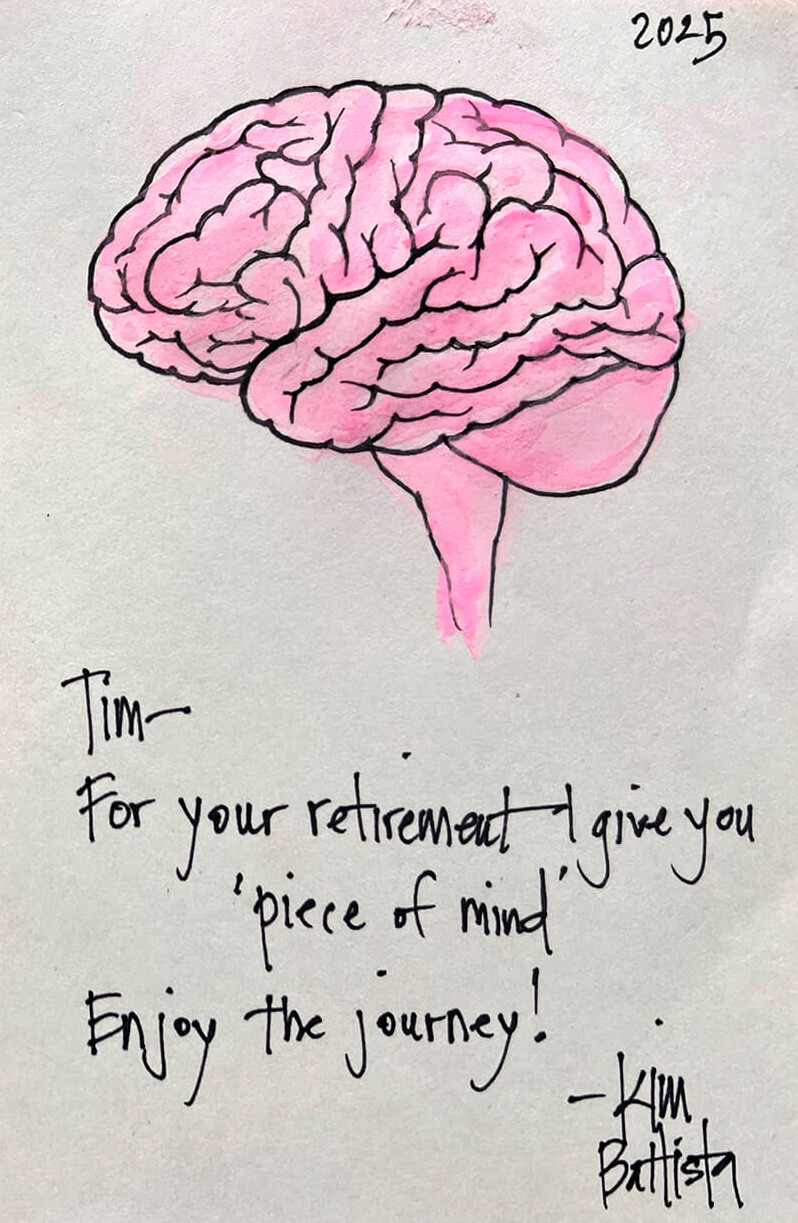 2025
Tim—
For your retirement I give you
'piece of mind'
Enjoy the journey!
—Kim
Battista